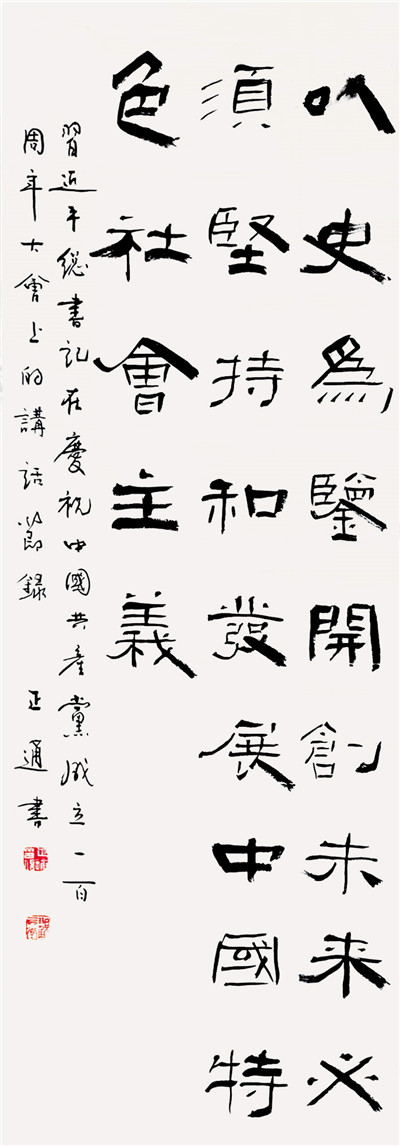 以史爲鑒開創未來必
須堅持和發展中國特
色社會主義
習近平總書記在慶祝中國共產黨成立一百
周年大會上的講話節錄 正通書